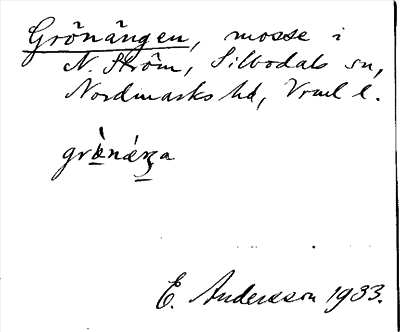 Grönängen, mosse i
N. Ström, Silbodals sn,
Nordmarks hd, Vrml l.
græ̀nǽŋa
E. Andersson 1933.